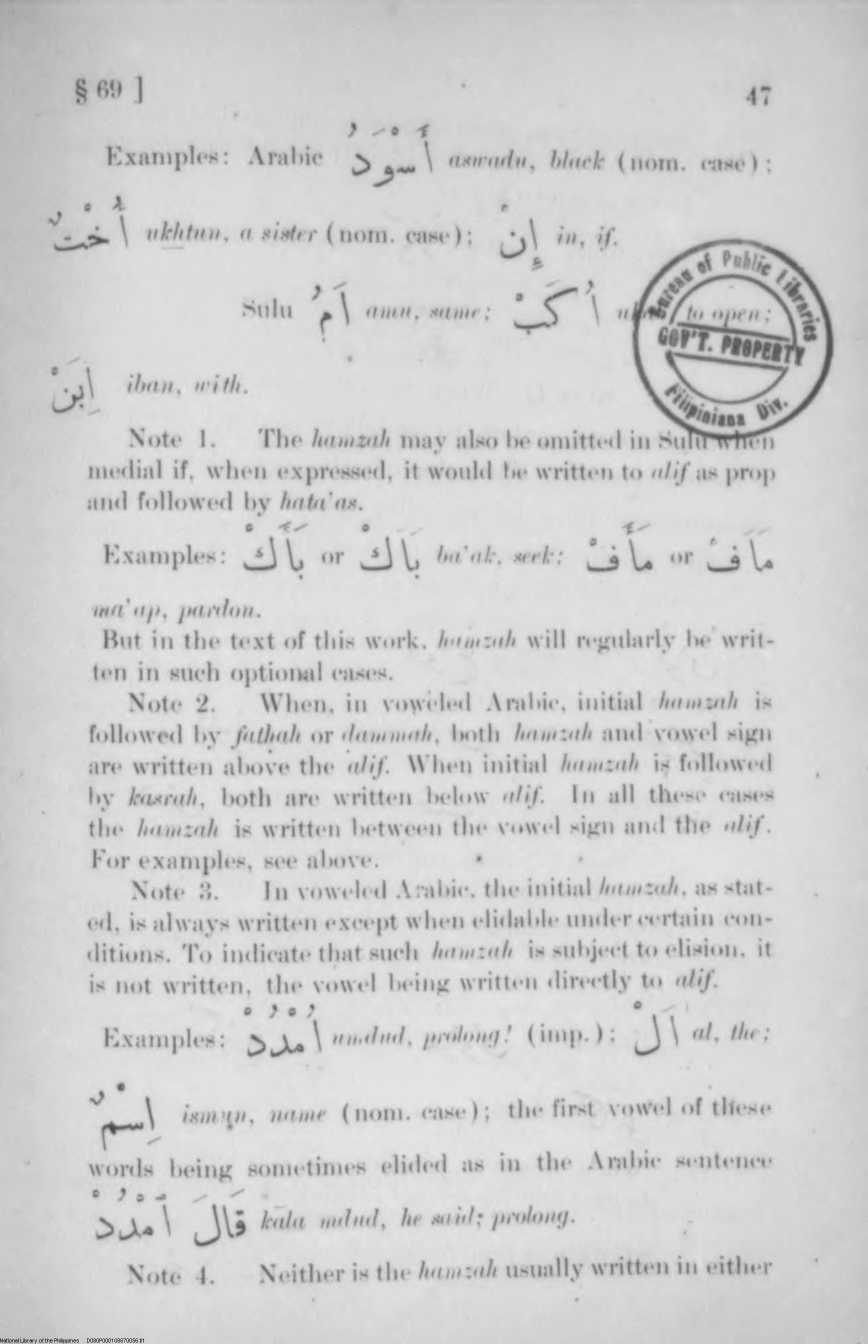 § 69 ] 47
Examples: Arabic أَسْوَدُ aswadu, black (nom. case);
أُخْتٌ ukhtun, a sister (nom. case); إِنْ in, if.
Sulu اَمُ amu, same; اُكَبْ to open;
اِبَنْ iban, with.
Note 1. The hamzah may also be omitted in Sulu when
medial if, when expressed, it would be written to alif as prop
and followed by hata'as.
Examples: بَأَكْ or بَاكْ ba'ak, seek; مَأَفْ or مَافْ
ma'ap, pardon.
But in the text of this work, hamzah will regularly be writ-
ten in such optional cases.
Note 2. When, in voweled Arabic, initial hamzah is
followed by fatḥah or dammah, both hamzah and vowel sign
are written above the alif. When initial hamzah is followed
by kasrah, both are written below alif. In all these cases
the hamzah is written between the vowel sign and the alif.
For examples, see above.
Note 3. In voweled Arabic, the initial hamzah, as stat-
ed, is always written except when elidable under certain con-
ditions. To indicate that such hamzah is subject to elision, it
is not written, the vowel being written directly to alif.
Examples: اُمْدُدْ umdud, prolong! (imp.); اَلْ al, the;
اِسْمٌ ismun, name (nom. case); the first vowel of these
words being sometimes elided as in the Arabic sentence
قَالَ امْدُدْ kāla mdud, he said; prolong.
Note 4. Neither is the hamzah usually written in either
Bureau of Public Libraries
GOV'T. PROPERTY
Filipiniana Div.
National Library of the Philippines